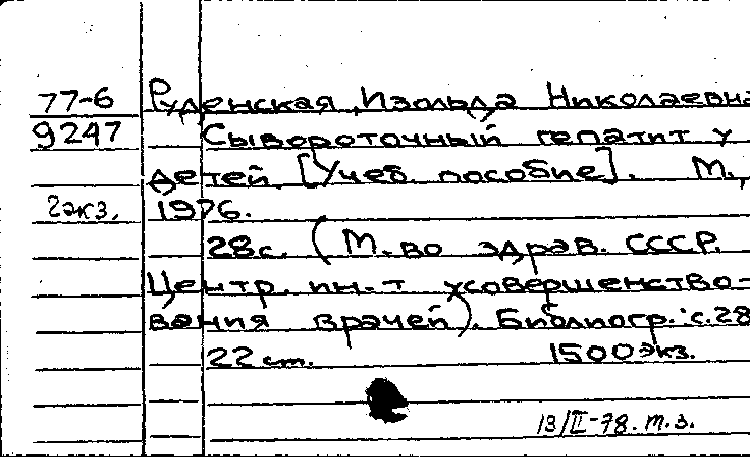 77-6 Руденская, Изольда Николаевна
9247 Сывороточный гепатит у
детей. [Учеб. пособие]. М.,
2экз. 1976.
28с. (М-во здрав. СССР.
Центр. ин-т усовершенство-
вания врачей). Библиогр.: с.28
22 см. 1500экз.
13/II-78. т.з.